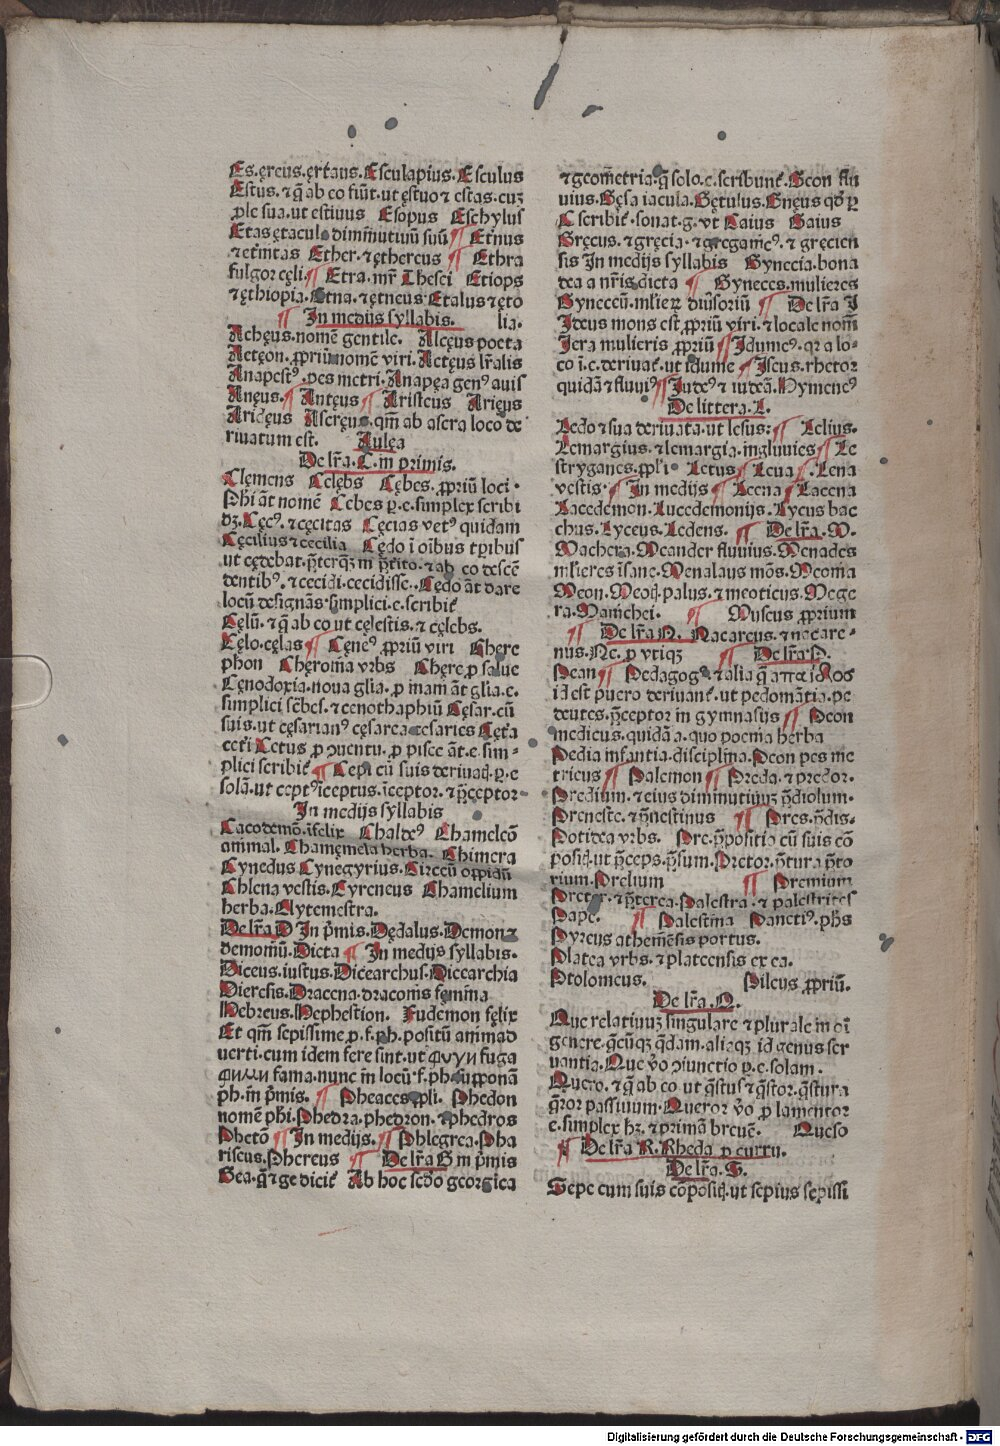 Es. ęreus. ęrtaus. Esculapius. Esculus
Estus. ⁊ q̄ ab eo fiūt. ut ęstuo ⁊ estas. cuʒ
ꝓle sua. ut estiuus Esopus Eschylus
Etas ętacula diminutiuū suū ¶ Etnus
⁊ etnitas Ether. ⁊ ęthereus ¶ Ethra
fulgor cęli. ¶ Etra. mr̄ Thesei Etiops
⁊ ęthiopia. Etna. ⁊ ętneus Etalus ⁊ ęto
¶ In medijs syllabis. lia.
Achęus. nomē gentile. Alcęus poeta
Acteon. ꝓpriū nomē viri. Actęus lr̄alis
Anapestꝰ. pes metri. Anapęa genꝰ auis
Anęus. ¶ Antęus ¶ Aristeus Arięus
Aridęus Ascręus. qm̄ ab ascra loco de
riuatum est. Aulęa
De lr̄a. C. in primis.
Clemens Celębs Cębes. ꝓpriū loci.
Phi āt nomē Cebes ꝑ. e. simplex scribi
dʒ. Cęcꝰ. ⁊ cęcitas Cęcias vētꝰ quidam
Cęcilius ⁊ cecilia Cędo ī oībus tꝑibus
ut cędebat. p̄terqʒ in p̄terito. ⁊ ab eo descē
dentibꝰ. ⁊ cecidi. cecidisse. Cędo āt dare
locū designās. simplici. e. scribit̄
Cęlū. ⁊ q̄ ab eo ut cęlestis. ⁊ cęlebs.
Cęlo. cęlas ¶ Cęneꝰ ꝓpriū viri Chere
phon Cheronia vrbs Chere ꝓ salue
Cęnodoxia. noua glia. ꝓ inani āt glia. e.
simplici scēbes. ⁊ cenothaphiū Cęsar. cū
suis. ut cęsarianꝰ cęsarea cesaries Cęta
ceti Cetus ꝓ ↄuentu. ꝓ pisce āt. e. sim-
plici scribit̄ ¶ Cepi cū suis deriuatꝭ. ꝑ. e
solā. ut ceptꝰ īceptus. īceptor. ⁊ p̄ceptor
In medijs syllabis
Cacodemō. īfelix Chaldeꝰ Chameleō
animal. Chamemela herba. Chimera
Cynedus Cynegyrius. Circeū oppidū
Chlena vestis. Cyreneus Chamelium
herba. Clytemestra.
De lr̄a D In p̄mis. Dędalus. Demon ⁊
demoniū. Dicta ¶ In medijs syllabis.
Diceus. iustus. Dicearchus. Diccarchia
Dieresis. Dracena. draconis femina
Hebreus. Hephestion. Fudemon fęlix
Et qm̄ sepissime ꝓ. f. ph. positū animad
uerti. cum idem fere sint. ut φυγη fuga
φημη fama. nunc in locū. f. ph. supponā
ph. in p̄mis. ¶ Pheaces ꝓpli. Phedon
nomē phi. Phedra. phedron. ⁊ phedros
Phetō ¶ In medijs. ¶ Phlegrea. Pha
riseus. Phereus ¶ De lr̄a G in p̄mis
Gea. q̄ ⁊ ge dicit̄ Ab hoc scdo georgica
⁊ geometria. q̄ solo. e. scribunt̄. Geon flu
uius. Gęsa iacula. Gętulus. Gnęus qd̄ ꝑ
C scribit̄. sonat. g. vt Caius Gaius
Gręcus. ⁊ gręcia. ⁊ gręgamēꝰ. ⁊ gręcien
sis In medijs syllabis Gynecia. bona
dea a nr̄is dicta ¶ Gyneces. mulieres
Gyneceū. mlierū diuisoriū ¶ De lr̄a I
Ideus mons est. ꝓpriū viri. ⁊ locale nomē
Iera mulieris ꝓpriū ¶ Idumeꝰ. qr a lo-
co i. e. deriuat̄. ut Idume ¶ Iseus. rhetor
quidā ⁊ fluuiꝰ ¶ Iudeꝰ ⁊ iudeā. Hymeneꝰ
De littera. L.
Ledo ⁊ sua deriuata. ut lesus: ¶ Lelius.
Lemargius. ⁊ lemargia. ingluuies ¶ Le
strygones. ꝓpli. Letus ¶ Leua ¶ Lena
vestis. ¶ In medijs ¶ Leena ¶ Lacena
Lacedemon. Lacedemonijs. Lyeus bac
chus. Lyceus. Ledens. ¶ De lr̄a. M.
Machera. Meander fluuius. Menades
mlieres īsane. Menalaus mōs. Meonia
Meon. Meotꝭ. palus. ⁊ meoticus. Mege
ra. Manichei. ¶ Museus ꝓprium
¶ De lr̄a N. Nacareus. ⁊ nacare-
nus. Ne. ꝓ vtiqʒ ¶ De lr̄a P.
Pean ¶ Pedagogꝰ. ⁊ alia q̄ α παιδος
id est puero deriuant̄. ut pedomātia. pe
deutes. p̄ceptor in gymnasijs ¶ Peon
medicus. quidā a. quo poenia herba
Pedia infantia. disciplina. Peon pes me
tricus ¶ Palemon ¶ Preda. ⁊ predor.
Predium. ⁊ eius diminutiuuʒ p̄diolum.
Preneste. ⁊ p̄nestinus ¶ Pres. p̄dis.
Potidea vrbs. Pre. p̄positio cū suis cō
positꝭ. ut p̄ceps. p̄sum. Pretor. p̄tura p̄to
rium. Prelium ¶ Premium
Preter. ⁊ p̄terea. Palestra. ⁊ palestrites
Pape. ¶ Palestina Panetiꝰ. phs
Pyreus atheniēsis portus.
Platea vrbs. ⁊ plateensis ex ea.
Ptolomeus. Pileus ꝓpriū.
De lr̄a. Q.
Que relatiuuʒ singulare ⁊ plurale in oī
genere. q̄cūqʒ q̄dam. aliaqʒ id genus ser
uantia. Que v̄o ↄiunctio ꝑ. e. solam.
Quero. ⁊ q̄ ab eo ut q̄stus ⁊ q̄stor. q̄stura
q̄ror passiuum. Queror v̄o ꝓ lamentor
e. simplex hʒ. ⁊ primā breuē. Queso
¶ De lr̄a R. Rheda ꝓ curru.
De lr̄a. S.
Sepe cum suis cōpositꝭ. ut sepius sępissi
Digitalisierung gefördert durch die Deutsche Forschungsgemeinschaft - DFG